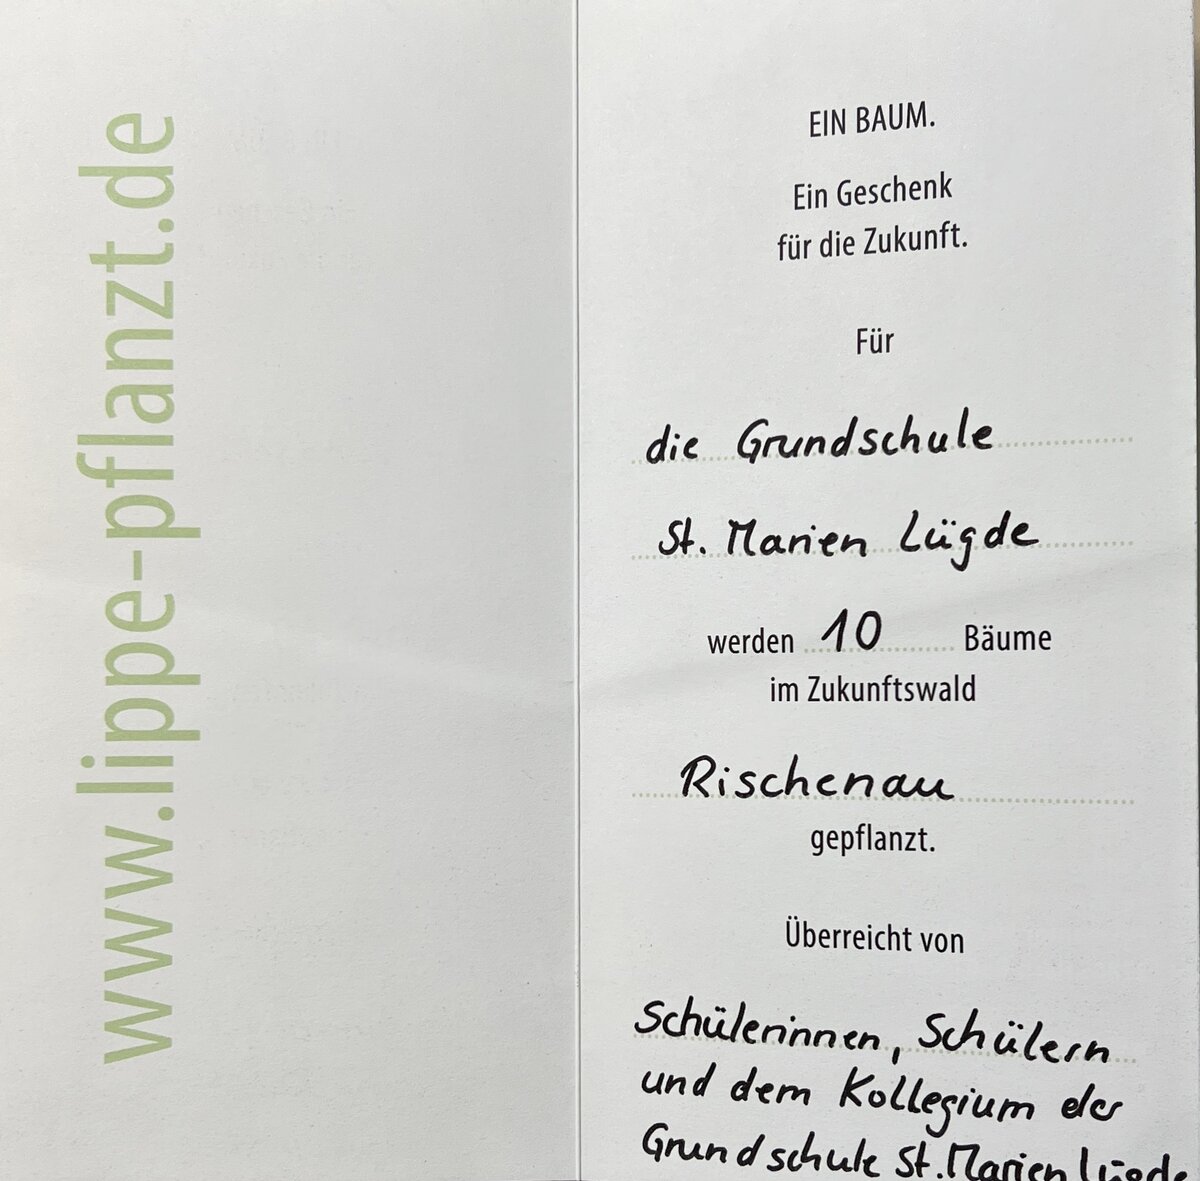 www.lippe-pflanzt.de
EIN BAUM.
Ein Geschenk
für die Zukunft.
Für
die Grundschule
St. Marien Lügde
werden 10 Bäume
im Zukunftswald
Rischenau
gepflanzt.
Überreicht von
Schülerinnen, Schülern
und dem Kollegium der
Grundschule St. Marien Lügde